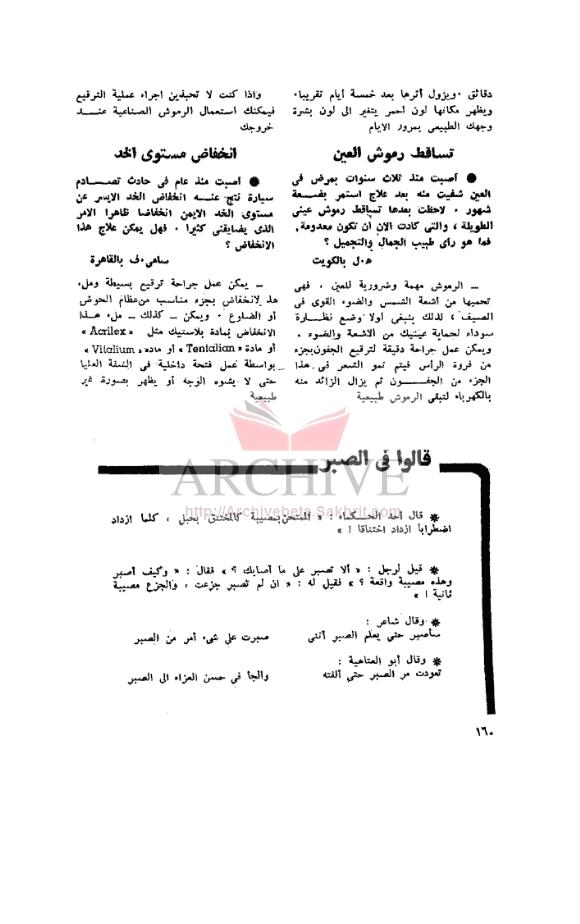 دقائق ٠ ويزول أثرها بعد خمسة أيام تقريبا٠
ويظهر مكانها لون أحمر يتغير الى لون بشرة
وجهك الطبيعي بمرور الايام
تساقط رموش العين
● أصبت منذ ثلاث سنوات بمرض فى
العين شفيت منه بعد علاج استمر بضعة
شهور ٠ لاحظت بعدها تساقط رموش عينى
الطويلة ، والتى كادت الان أن تكون معدومة٠
فما هو رأى طبيب الجمال والتجميل ؟
هـ٠ل بالكويت
ــ الرموش مهمة وضرورية للعين ، فهى
تحميها من أشعة الشمس والضوء القوى فى
الصيف ، لذلك ينبغى اولا وضع نظارة
سوداء لحماية عينيك من الاشعة والضوء ٠
ويمكن عمل جراحة دقيقة لترقيع الجفون بجزء
من فروة الرأس فيتم نمو الشعر فى هذا
الجزء من الجفون ثم يزال الزائد منه
بالكهرباء لتبقى الرموش طبيعية
واذا كنت لا تحبذين اجراء عملية الترقيع
فيمكنك استعمال الرموش الصناعية عند
خروجك
انخفاض مستوى الخد
● أصبت منذ عام فى حادث تصادم
سيارة نتج عنه انخفاض الخد الايسر عن
مستوى الخد الايمن انخفاضا ظاهرا الامر
الذى يضايقنى كثيرا ٠ فهل يمكن علاج هذا
الانخفاض ؟
سامى٠ف بالقاهرة
ــ يمكن عمل جراحة ترقيع بسيطة وملء
هذا الانخفاض بجزء مناسب من عظام الحوض
أو الضلوع ٠ ويمكن ــ كذلك ــ ملء هذا
الانخفاض بمادة بلاستيك مثل « Acrilex »
أو مادة « Tentalian » أو مادة « Vitalium »
بواسطة عمل فتحة داخلية فى الشفة العليا
حتى لا يشوه الوجه أو يظهر بصورة غير
طبيعية
قالوا فى الصبر
ARCHIVE
http://Archivebeta.Sakhrit.com
✱ قال أحد الحكماء : « الممتحن بمصيبة كالمختنق بحبل ، كلما ازداد
اضطرابا ازداد اختناقا ! »
✱ قيل لرجل : « ألا تصبر على ما أصابك ؟ » فقال : « وكيف أصبر
وهذه مصيبة واقعة ؟ » فقيل له : « ان لم تصبر جزعت ، والجزع مصيبة
ثانية ! »
✱ وقال شاعر :
سأصبر حتى يعلم الصبر أننى صبرت على شىء أمر من الصبر
✱ وقال أبو العتاهية :
تعودت مر الصبر حتى ألفته وألجأ فى حسن العزاء الى الصبر
١٦٠